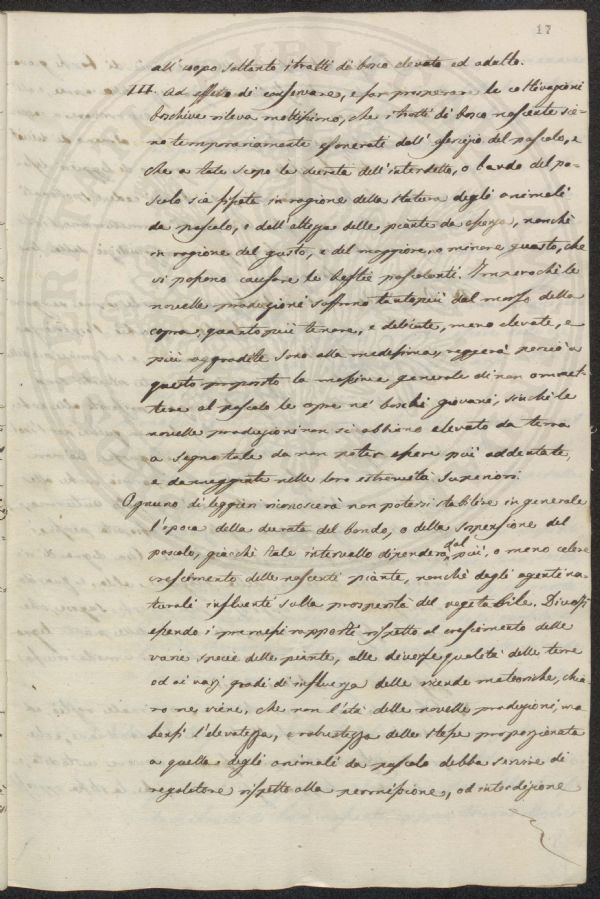 17
all' uopo soltanto i tratti di bosco elevato ed adulto.
III. Ad effetto di conservare, e far prosperar le coltivazioni
boschive rileva moltissimo, che i tratti di bosco nascente sie-
no temporariamente esonerati dall' esercizio del pascolo, e
che a tale scopo la durata dell' interdetto, o bando del pa-
scolo sia fissata in ragione della statura degli animali
da pascolo, e dall' altezza delle piante da essenza, nonchè
in ragione del gusto, e del maggiore, o minore guasto, che
vi possono causare le bestie pascolanti. Imperochè le
novelle produzioni soffrono tanto più dal morso della
capra, quanto più tenere, e delicate, meno elevate, e
più aggradite sono alla medesima, reggerà perciò a
questo proposito la massima generale di non ammet-
tere al pascolo le capre nè boschi giovani, sinchè le
novelle produzioni non si abbiano elevato da terra
a segno tale da non poter essere più addentate,
e danneggiate nelle loro estremità superiori.
Ognuno di leggieri riconoscerà non potersi stabilire in generale
l'epoca della durata del bando, o della sospensione del
pascolo, giacchè tale intervallo dipenderà dal più, o meno celere
crescimento delle nascenti piante, nonchè degli agenti na-
turali influenti sulla prosperità del vegetabile. Diversi
essendo i premessi rapporti rispetto al crescimento delle
varie specie delle piante, alle diverse qualità delle terre
ed ai varj gradi di influenza delle vicende meteoriche, chia-
ro ne viene, che non l'età delle novelle produzioni, ma
bensì l'elevatezza, e robustezza delle stesse proporzionata
a quella degli animali da pascolo debba servire di
regolatore rispetto alla permissione, od interdizione